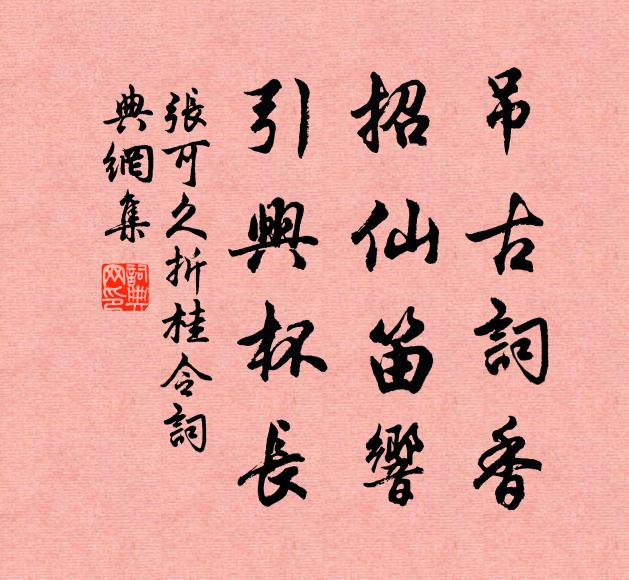 吊古詞香
招仙笛響
引興杯長
張可久折桂令詞
典網集
詞典
网印